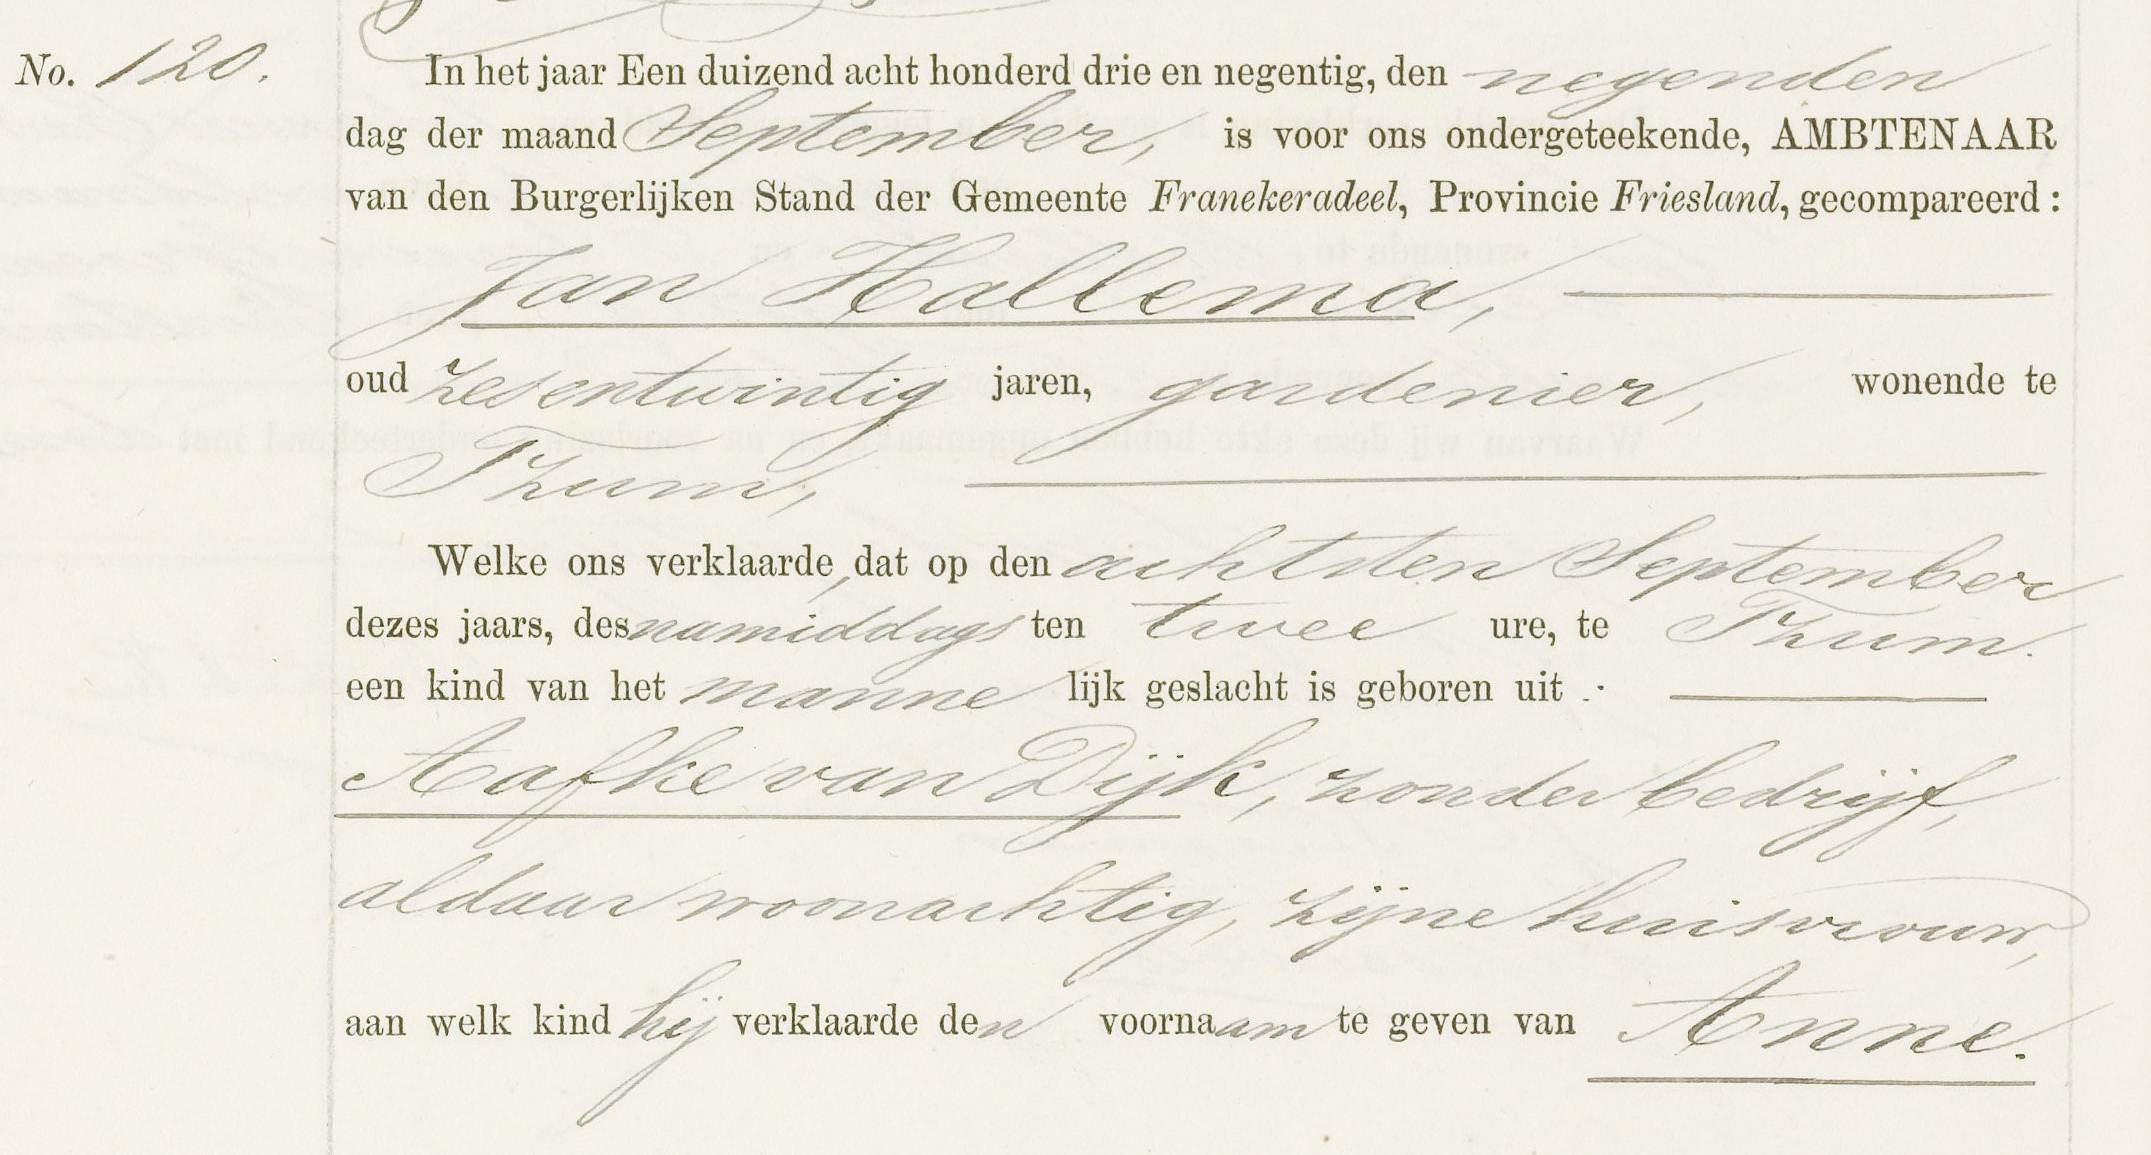 No. 120. In het jaar Een duizend acht honderd drie en negentig, den negenden
dag der maand September, is voor ons ondergeteekende, AMBTENAAR
van den Burgerlijken Stand der Gemeente Franekeradeel, Provincie Friesland, gecompareerd:
Jan Hallema,
oud zesentwintig jaren, gardenier, wonende te
Tzum,
Welke ons verklaarde, dat op den achtsten September
dezes jaars, des namiddags ten twee ure, te Tzum.
een kind van het mannelijk geslacht is geboren uit :
Aafke van Dijk, zonder bedrijf,
aldaar woonachtig, zijne huisvrouw,
aan welk kind hij verklaarde den voornaam te geven van Anne.